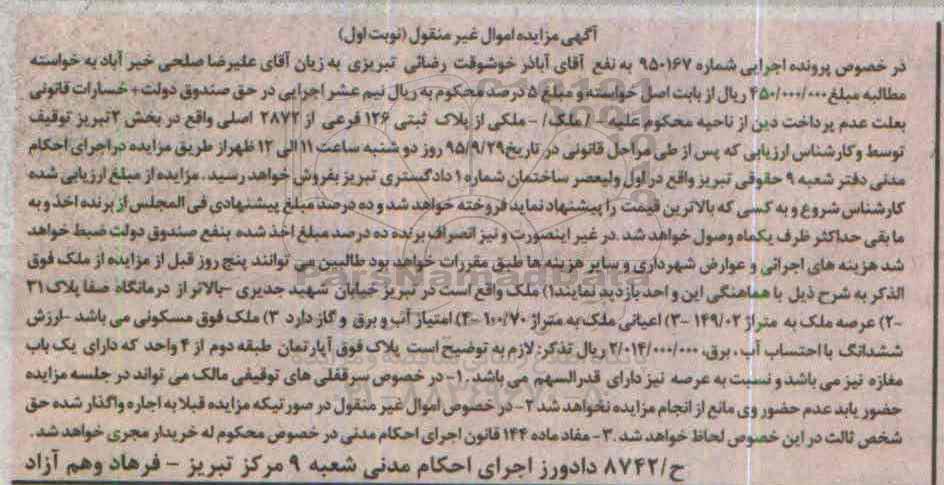 آگهی مزایده اموال غیر منقول (نوبت اول)
در خصوص پرونده اجرایی شماره ۹۵۰۱۶۷ به نفع آقای آباذر خوشوقت رضائی تبریزی به زیان آقای علیرضا صلحی خیر آباد به خواسته
مطالبه مبلغ ۴۵۰/۰۰۰/۰۰۰ ریال از بابت اصل خواسته و مبلغ ۵ درصد محکوم به ریال نیم عشر اجرایی در حق صندوق دولت+ خسارات قانونی
بعلت عدم پرداخت دین از ناحیه محکوم علیه - / ملک / - ملکی از پلاک ثبتی ۱۲۶ فرعی از ۲۸۷۲ اصلی واقع در بخش ۲ تبریز توقیف
توسط وکارشناس ارزیابی که پس از طی مراحل قانونی در تاریخ ۹۵/۹/۲۹ روز دو شنبه ساعت ۱۱ الی ۱۲ ظهر از طریق مزایده در اجرای احکام
مدنی دفتر شعبه ۹ حقوقی تبریز واقع در اول ولیعصر ساختمان شماره ۱ دادگستری تبریز بفروش خواهد رسید. مزایده از مبلغ ارزیابی شده
کارشناس شروع و به کسی که بالاترین قیمت را پیشنهاد نماید فروخته خواهد شد و ده درصد مبلغ پیشنهادی فی المجلس از برنده اخذ و به
ما بقی حداکثر ظرف یکماه وصول خواهد شد .در غیر اینصورت و نیز انصراف برنده ده درصد مبلغ اخذ شده بنفع صندوق دولت ضبط خواهد
شد هزینه های اجرائی و عوارض شهرداری و سایر هزینه ها طبق مقررات خواهد بود طالبین می توانند پنج روز قبل از مزایده از ملک فوق
الذکر به شرح ذیل با هماهنگی این واحد بازدید نمایند۱) ملک واقع است در تبریز خیابان شهید جدیری -بالاتر از درمانگاه صفا پلاک ۳۱
-۲) عرصه ملک به متراژ ۱۴۹/۰۲ -۳) اعیانی ملک به متراژ ۱۰۰/۷۰ -۴) امتیاز آب و برق و گاز دارد ۳) ملک فوق مسکونی می باشد -ارزش
ششدانگ با احتساب آب، برق، ۲/۰۱۴/۰۰۰/۰۰۰ ریال تذکر: لازم به توضیح است پلاک فوق آپارتمان طبقه دوم از ۴ واحد که دارای یک باب
مغازه نیز می باشد و نسبت به عرصه نیز دارای قدرالسهم می باشد .۱- در خصوص سرقفلی های توقیفی مالک می تواند در جلسه مزایده
حضور یابد عدم حضور وی مانع از انجام مزایده نخواهد شد ۲ - در خصوص اموال غیر منقول در صورتیکه مزایده قبلا به اجاره واگذار شده حق
شخص ثالث در این خصوص لحاظ خواهد شد .۳- مفاد ماده ۱۴۴ قانون اجرای احکام مدنی در خصوص محکوم له خریدار مجری خواهد شد.
ح/۸۷۴۲ دادورز اجرای احکام مدنی شعبه ۹ مرکز تبریز - فرهاد وهم آزاد
ParsNamadData